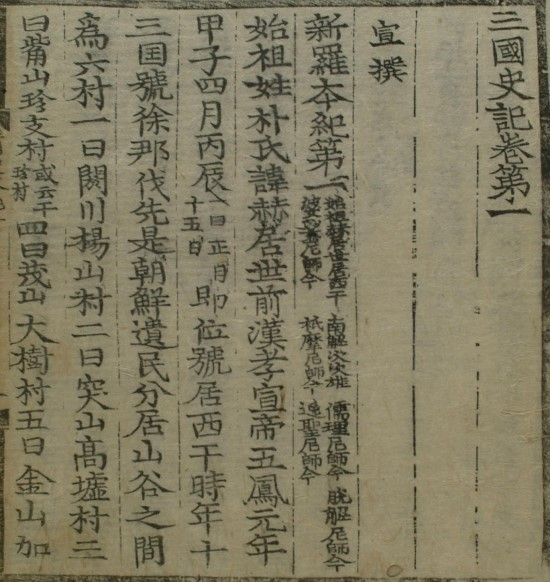 三國史記卷第一
宣撰
新羅夲紀第一 始祖赫居世居西干 南解次次雄 儒理尼師今 脫解尼師今 婆娑尼師今 祇摩尼師今 逸聖尼師今
始祖姓朴氏諱赫居世前漢孝宣帝五鳳元年
甲子四月丙辰一曰正月十五日即位號居西干時年十
三囯號徐那伐先是朝鮮遺民分居山谷之間
爲六村一曰閼川楊山村二曰突山髙墟村三
曰觜山珍支村或云干珍村四曰茂山大樹村五曰金山加